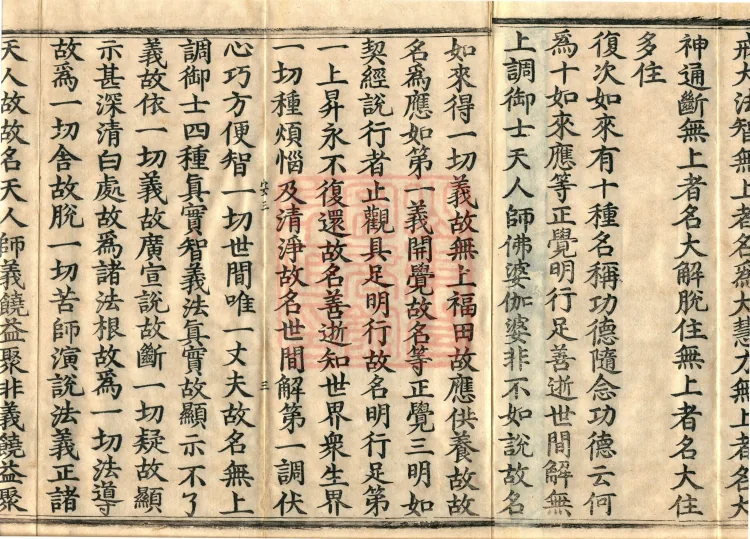 戒大法智無上者名爲大慧力無上者名大
神通斷無上者名大解脫住無上者名大住
多住
復次如來有十種名稱功德隨念功德云何
爲十如來應等正覺明行足善逝世間解無
上調御士天人師佛婆伽婆非不如說故名
如來得一切義故無上福田故應供養故故
名爲應如第一義開覺故名等正覺三明如
契經說行者止觀具足明行故名明行足第
一上昇永不復還故名善逝知世界衆生界
一切種煩惱及清淨故名世間解第一調伏
心巧方便智一切世間唯一丈夫故名無上
調御士四種眞實智義法眞實故顯示不了
義故依一切義故廣宣說故斷一切疑故顯
示甚深清白處故爲諸法根故爲一切法導
故爲一切舍故脫一切苦師演說法義正諸
天人故故名天人師義饒益聚非義饒益聚